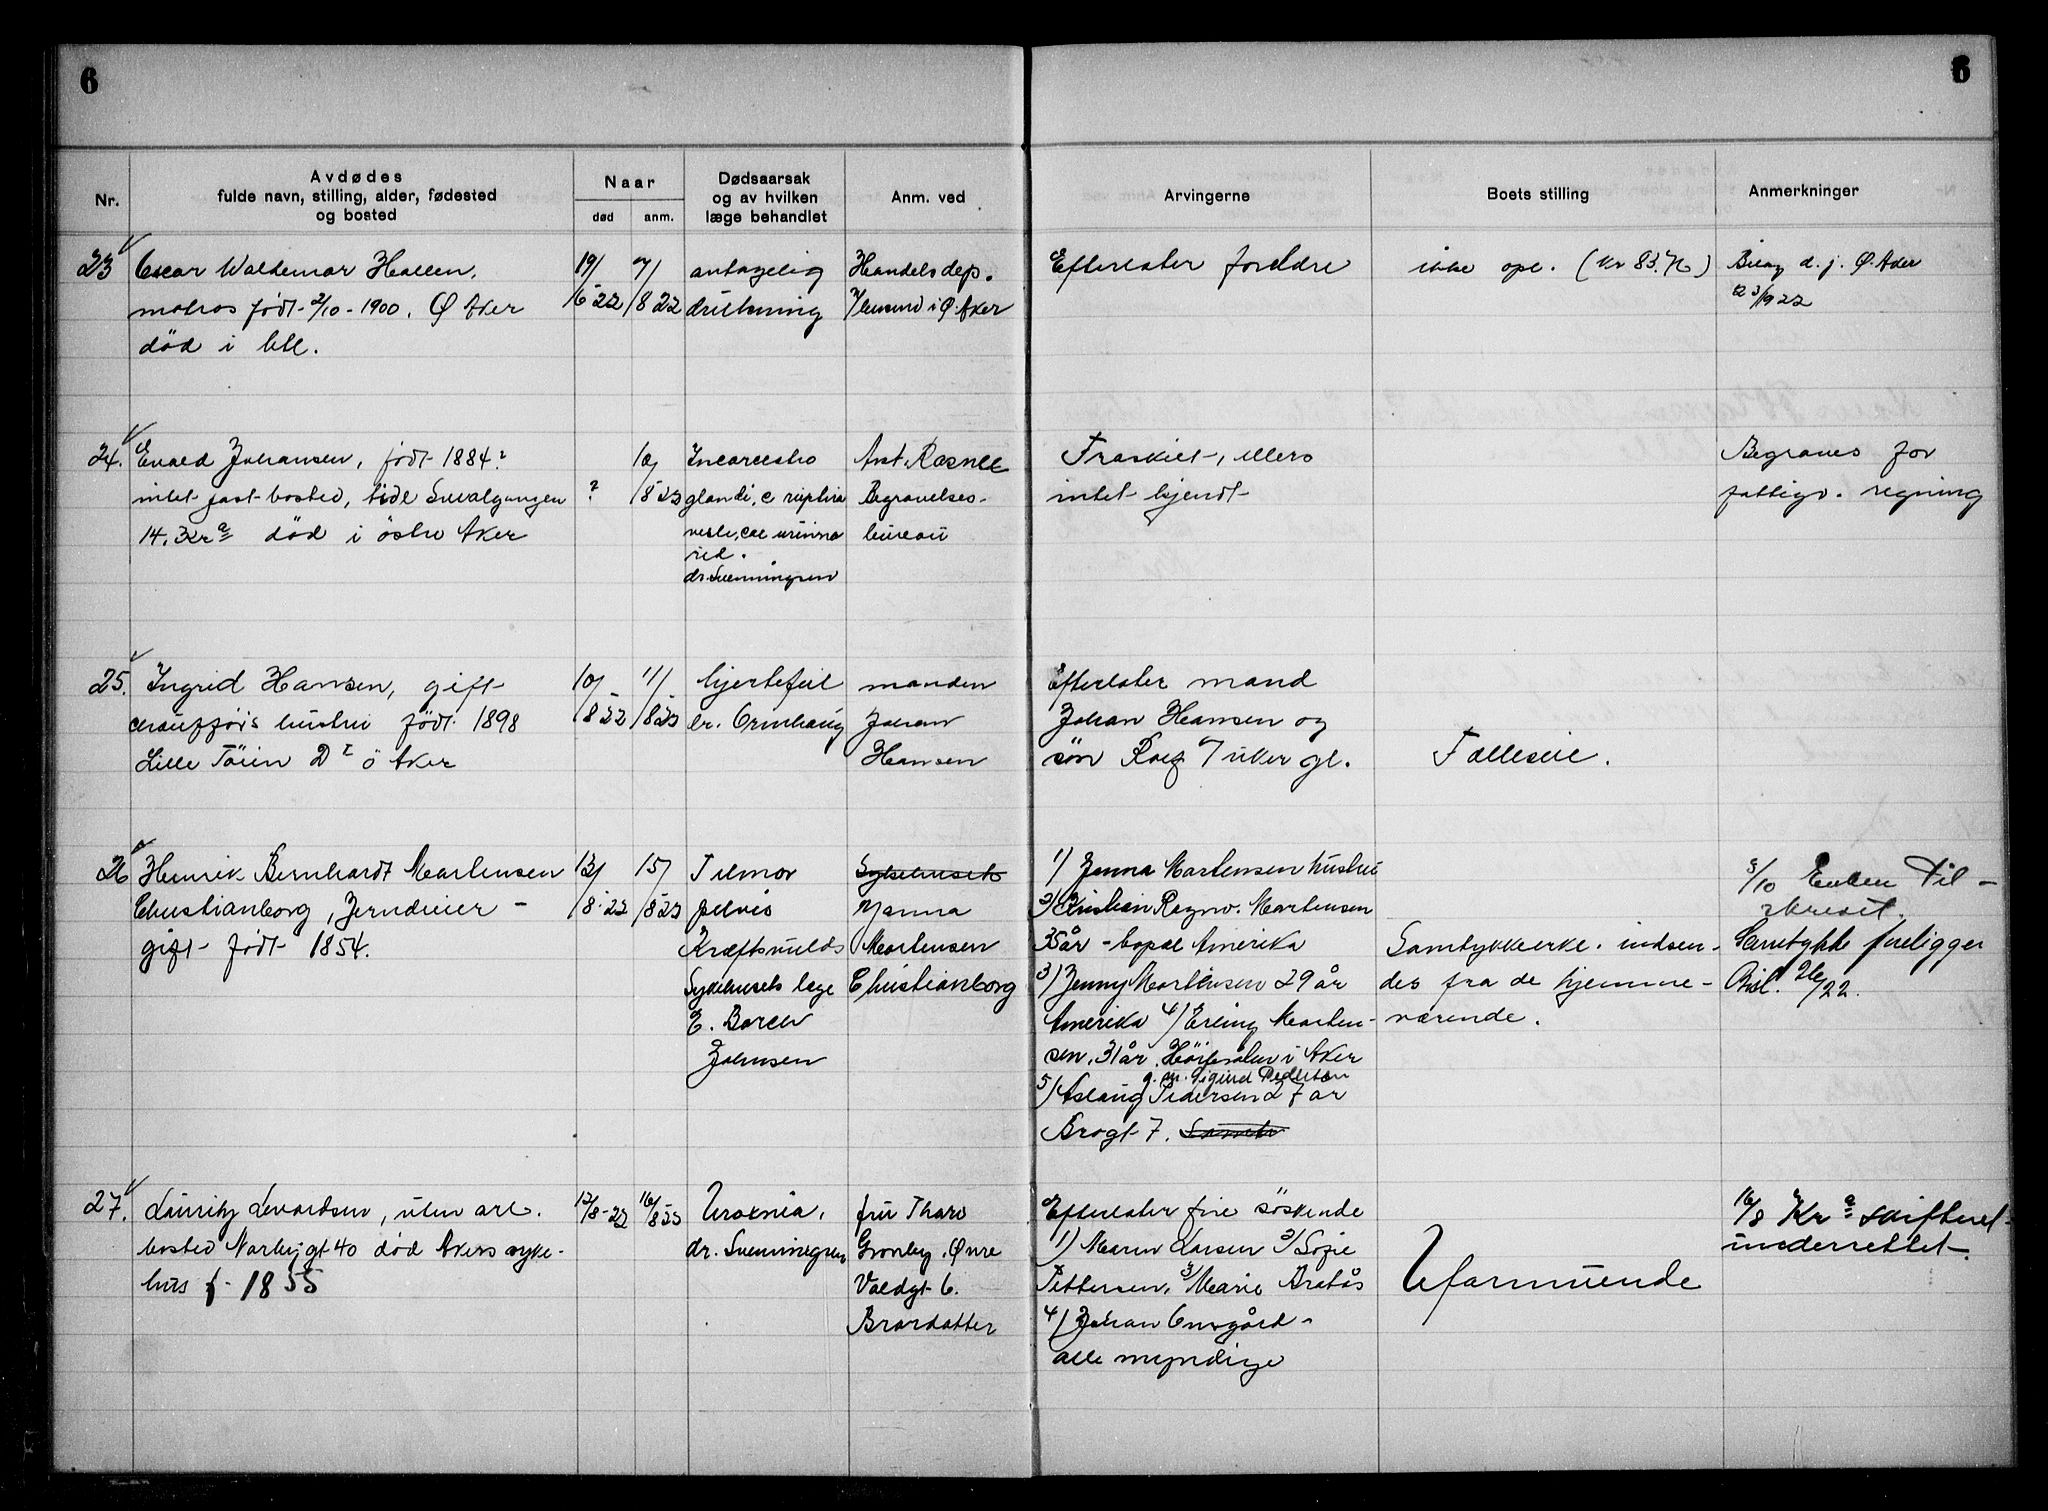 6
6
Nr.
Avdødes
fulde navn, stilling, alder, fødested
og bosted
Naar
død
anm.
Dødsaarsak
og av hvilken
læge behandlet
Anm. ved
Arvingerne
Boets stilling
Anmerkninger
23
Oscar Waldemar Hallen,
matros født 2/10-1900. Ø Aker
død i
19/6-22
7/8 22
antagelig
drukning
Handelsdep.
i Ø. Aker
Efterlater foreldre
ikke opl. (Kr 83.
d. j. Ø. Aker
1922
24.
Evald Johansen, født 1884?
intet fast bosted, tidl Svalgangen
14. Kra død i østre Aker
?
10/8 22
glandi, c ruptira
urinna
dr. Svenningsen
Ant. Rosnes
Begravelses-
bureau
Fraskilt, ellers
intet kjendt
Begraves for
fattigv. regning
25.
Ingrid Hansen, gift
chaufførs hustru født 1898
Lille Töien Ø Aker
10/8 22
11/8 22
hjertefeil
dr. Ormhaug
manden
Johan
Hansen
Efterlater mand
Johan Hansen og
søn Rolf 7 uker gl.
Fælleseie.
26
Henrik Bernhardt Martensen
Christianborg, Jerndreier -
gift født 1854.
13/8-22
15/8 22
Tumor
pelvis
Kræftsvulds
Sykehusets læge
E. Barclv
Johnsen
Sykehuset
Janna
Martensen
Christianborg
1) Janna Martensen hustru
2) Kristian Ragnv. Martensen
35 år - bopæl Amerika
3) Jenny Martensen 29 år
Amerika 4) Erling Marten-
sen, 31 år, i Aker
g. m. Sigurd Pedersen
5) Aslaug Pedersen 27 år
Brogt 7.
Samtykkeerkl. indsen-
des fra de hjemme-
værende.
3/10 Enken til-
skrevet.
Samtykke foreligger
Bil. 26/22.
27.
Lauritz Levardsen, uten arb.
bosted Norbygt 40 død Akers syke-
hus f. 1855
12/8-22
16/8 22
Uræmia,
dr. Svenningsen
fru Thara
Grønby. Øvre
Valdgt 6.
Brordatter
Efterlater fire søskende
1) Maren Larsen 2) Sofie
Pettersen, 3) Marie Aretås
4) Johan Omsgård -
alle myndige
Uformuende
16/8 Kra skifteret
underrettet.